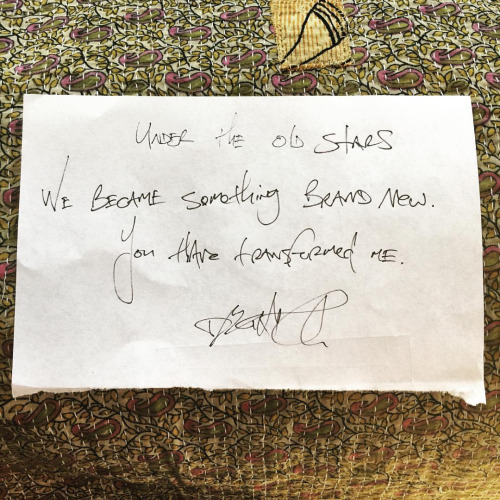 UNDER the old STARS
WE BECAME something BRAND New.
You HAVE transformed ME.